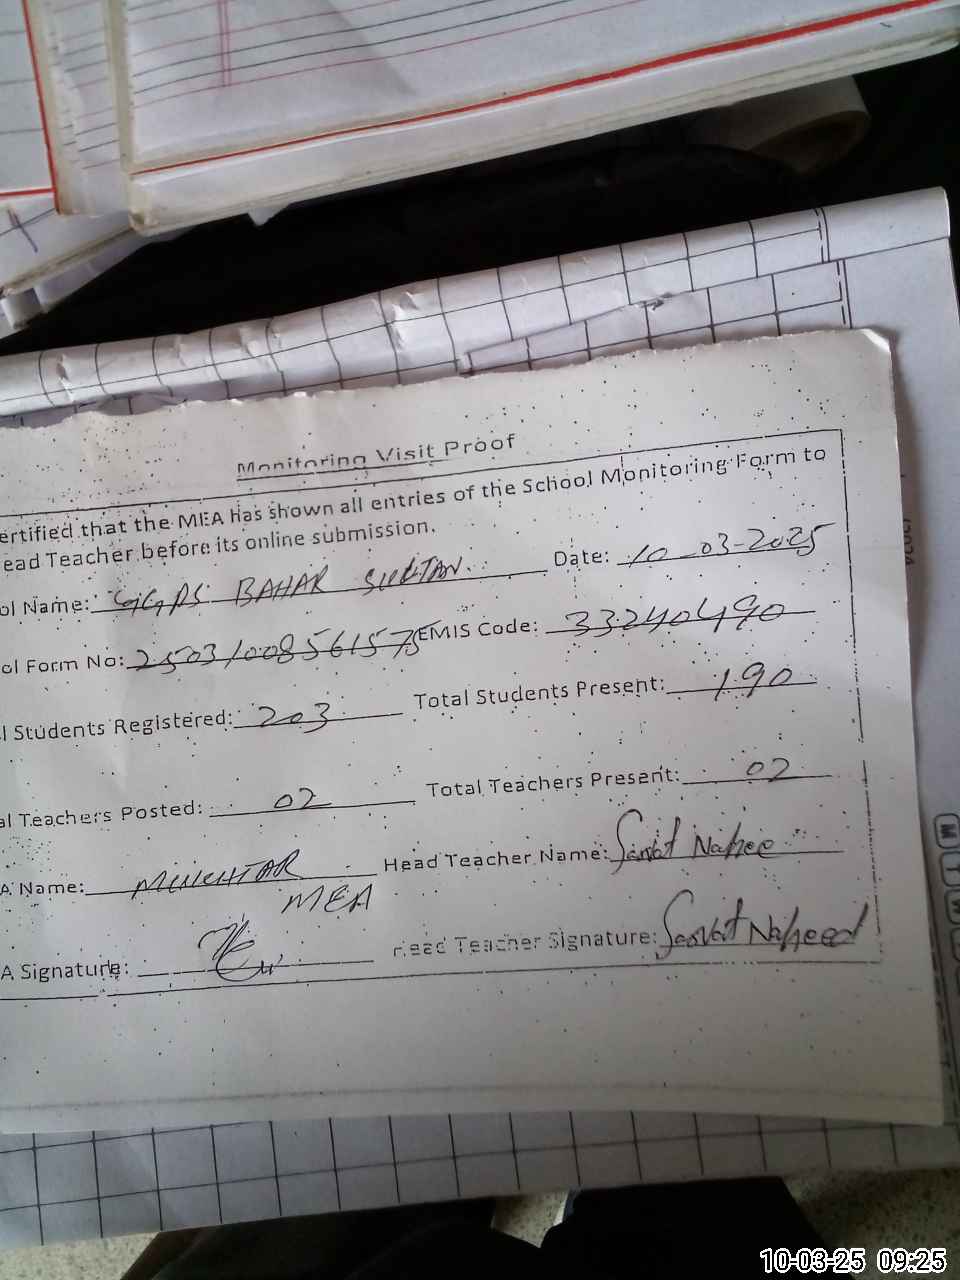 Monitoring Visit Proof
ertified that the MEA has shown all entries of the School Monitoring Form to
ead Teacher before its online submission.
ol Name: GGPS BAHAR SULTAN Date: 10-03-2025
ol Form No: 25031008561575 EMIS Code: 33240490
l Students Registered: 203 Total Students Present: 190
al Teachers Posted: 02 Total Teachers Present: 02
A Name: MUKHTAR Head Teacher Name: Sarvat Nahee
MEA
A Signature: Head Teacher Signature: Sarvat Naheed
10-03-25 09:25